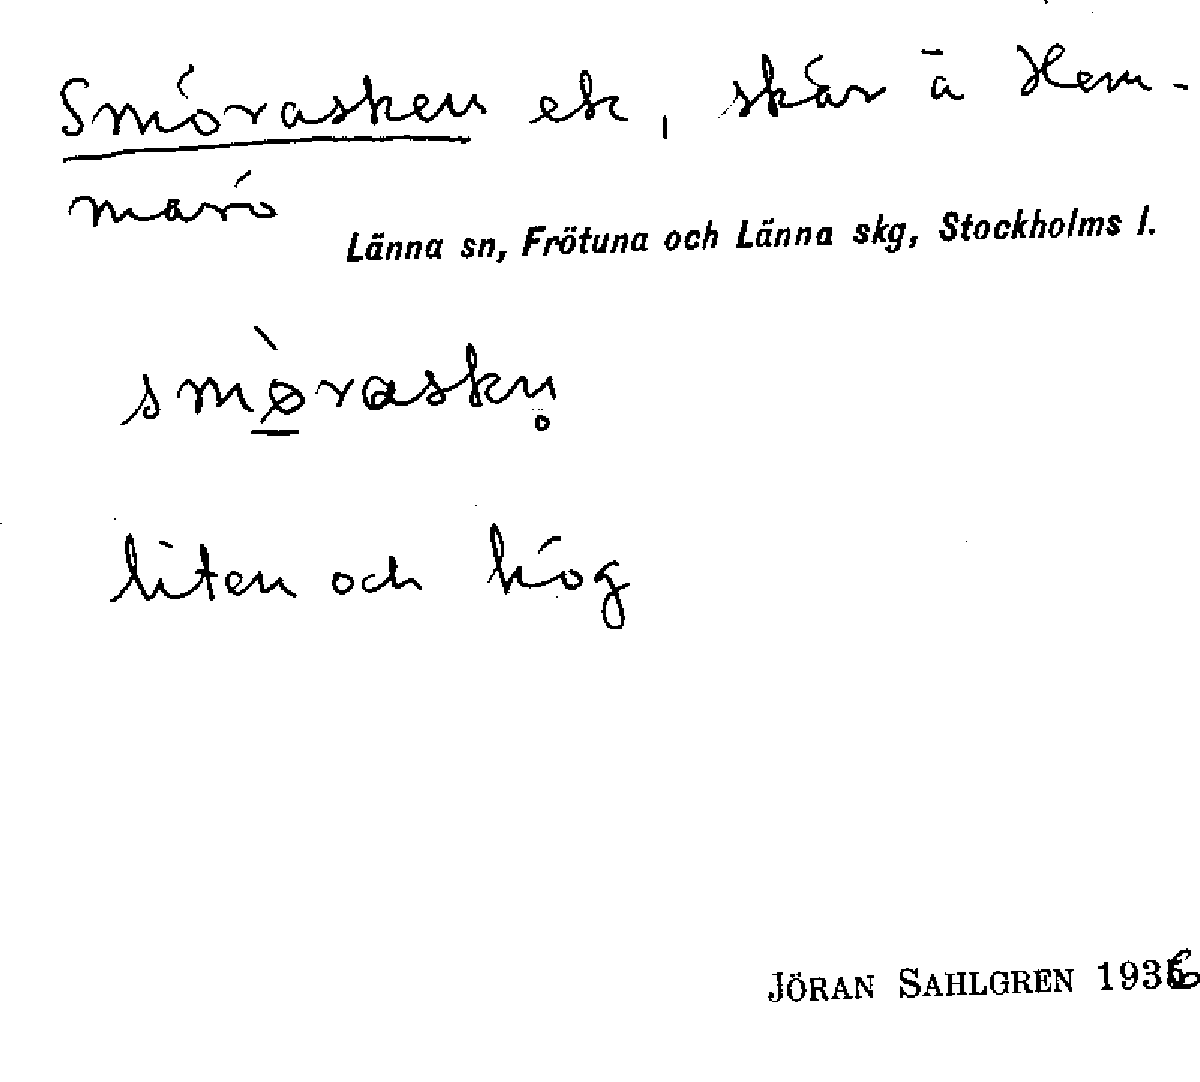 Smörasken ek, skär å Hem-
marö
Länna sn, Frötuna och Länna skg, Stockholms l.
smø̀raskn̥
liten och hög
JÖRAN SAHLGREN 1936